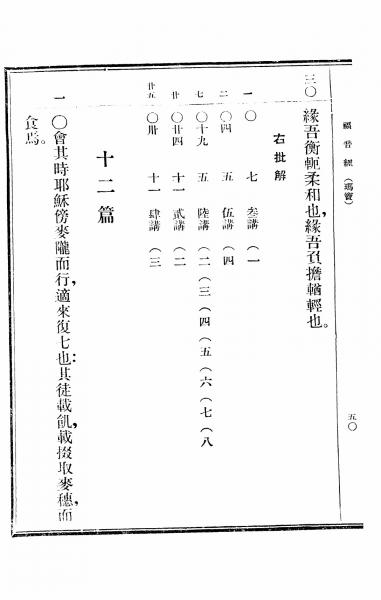 福音經（瑪竇） 五〇
三〇 緣吾衡軛柔和也，緣吾負擔輶輕也。
右批解
一 〇 七 叁講（一
二 〇四 五 伍講（四
七 〇十九 五 陸講（二（三（四（五（六（七（八
廿 〇廿四 十一 貳講（二
廿五 〇卅 十一 肆講（三
十二篇
一 〇會其時耶穌傍麥隴而行，適來復七也：其徒載飢，載掇取麥穗，而
食焉。